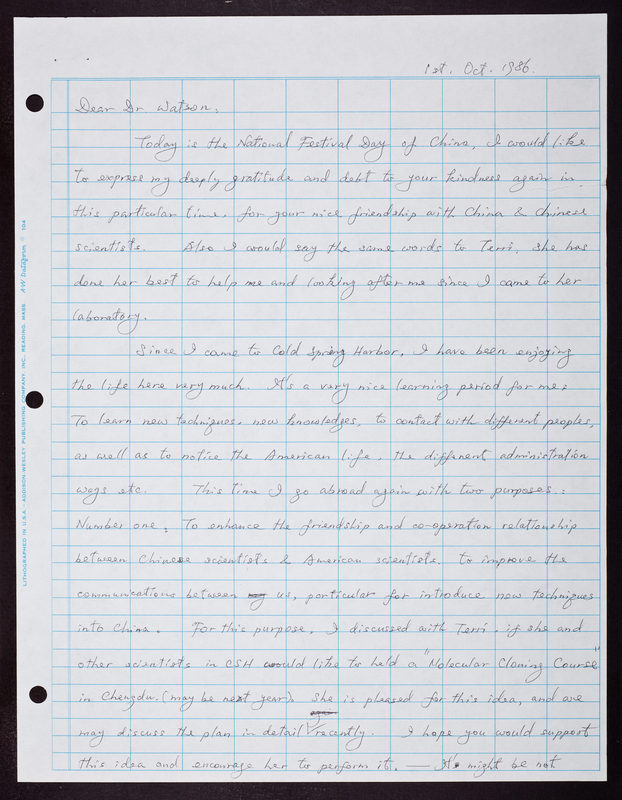 1st. Oct. 1986.
Dear Dr Watson,
Today is the National Festival Day of China, I would like
to express my deeply gratitude and debt to your kindness again in
this particular time, for your nice friendship with China & Chinese
scientists. Also I would say the same words to Terri, she has
done her best to help me and looking after me since I came to her
laboratory.
Since I came to Cold Spring Harbor, I have been enjoying
the life here very much. It's a very nice learning period for me:
To learn new techniques, new knowledges, to contact with different peoples,
as well as to notice the American life, the different administration
ways etc. This time I go abroad again with two purposes:
Number one, To enhance the friendship and co-operation relationship
between Chinese scientists & American scientists. to improve the
communications between us, particular for introduce new techniques
into China. For this purpose, I discussed with Terri, if she and
other scientists in CSH would like to held a "Molecular Cloning Course"
in Chengdu. (may be next year). She is pleased for this idea, and we
may discuss the plan in detail recently. I hope you would support
this idea and encourage her to perform it. — It might be not
LITHOGRAPHED IN U.S.A. ADDISON-WESLEY PUBLISHING COMPANY, INC. READING, MASS. AW Datagrm ® 104